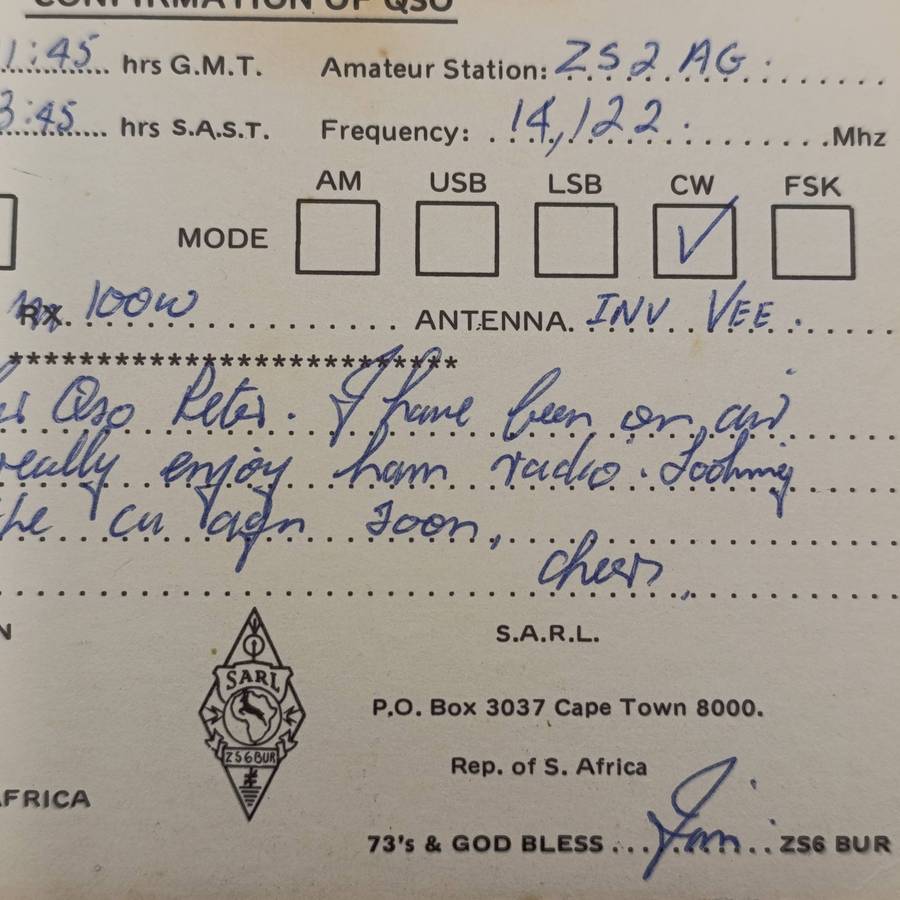 CONFIRMATION OF QSO
1:45 hrs G.M.T. Amateur Station: ZS2 AG
3:45 hrs S.A.S.T. Frequency: 14,122 Mhz
AM USB LSB CW FSK
MODE
RX 100W ANTENNA. INV VEE.
**************************
QSO Peter. I have been on air
really enjoy ham radio. Looking
the cu agn soon,
cheers
S.A.R.L.
SARL
P.O. Box 3037 Cape Town 8000.
ZS6BUR
Rep. of S. Africa
AFRICA
73's & GOD BLESS ZS6 BUR